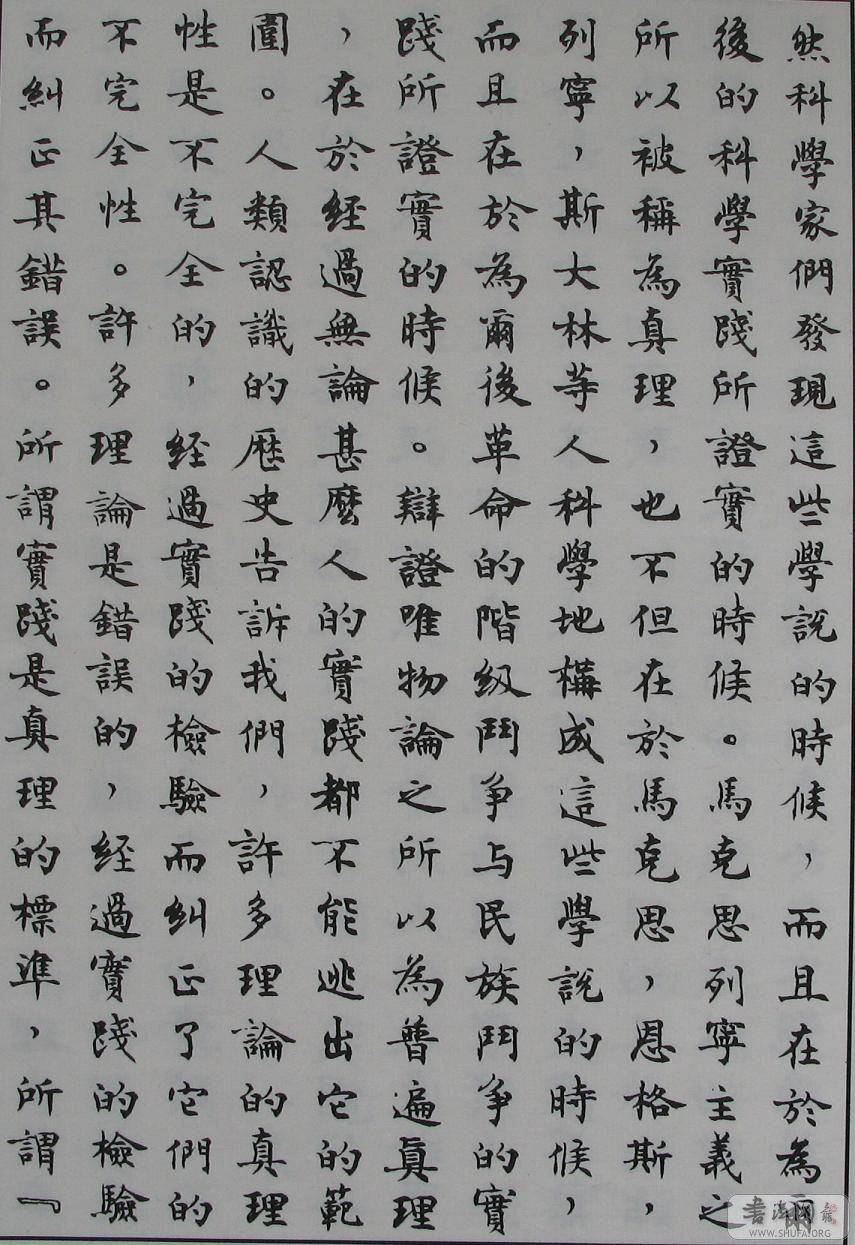 然科學家們發現這些學説的時候，而且在於為爾
後的科學實踐所證實的時候。馬克思列寧主義之
所以被稱為真理，也不但在於馬克思，恩格斯，
列寧，斯大林等人科學地構成這些學説的時候，
而且在於為爾後革命的階級鬥争与民族鬥争的實
踐所證實的時候。辯證唯物論之所以為普遍真理
，在於経過無論甚麼人的實踐都不能逃出它的範
圍。人類認識的歷史告訴我們，許多理論的真理
性是不完全的，経過實踐的檢驗而糾正了它們的
不完全性。許多理論是錯誤的，経過實踐的檢驗
而糾正其錯誤。所謂實踐是真理的標準，所謂『
書法网
WWW.SHUFA.ORG